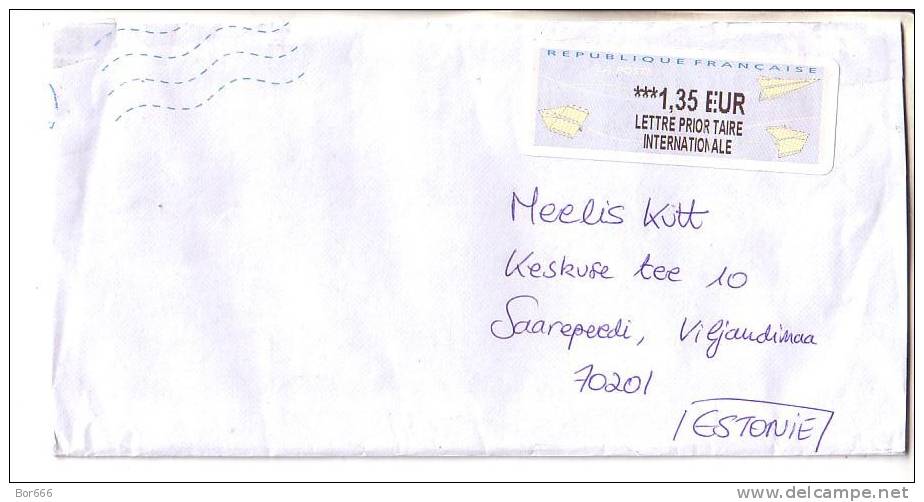 REPUBLIQUE FRANÇAISE
***1,35 EUR
LETTRE PRIORITAIRE
INTERNATIONALE
Meelis Kütt
Keskuse tee 10
Saarepeedi, Viljandimaa
70201
ESTONIE
Bor666
www.delcampe.net